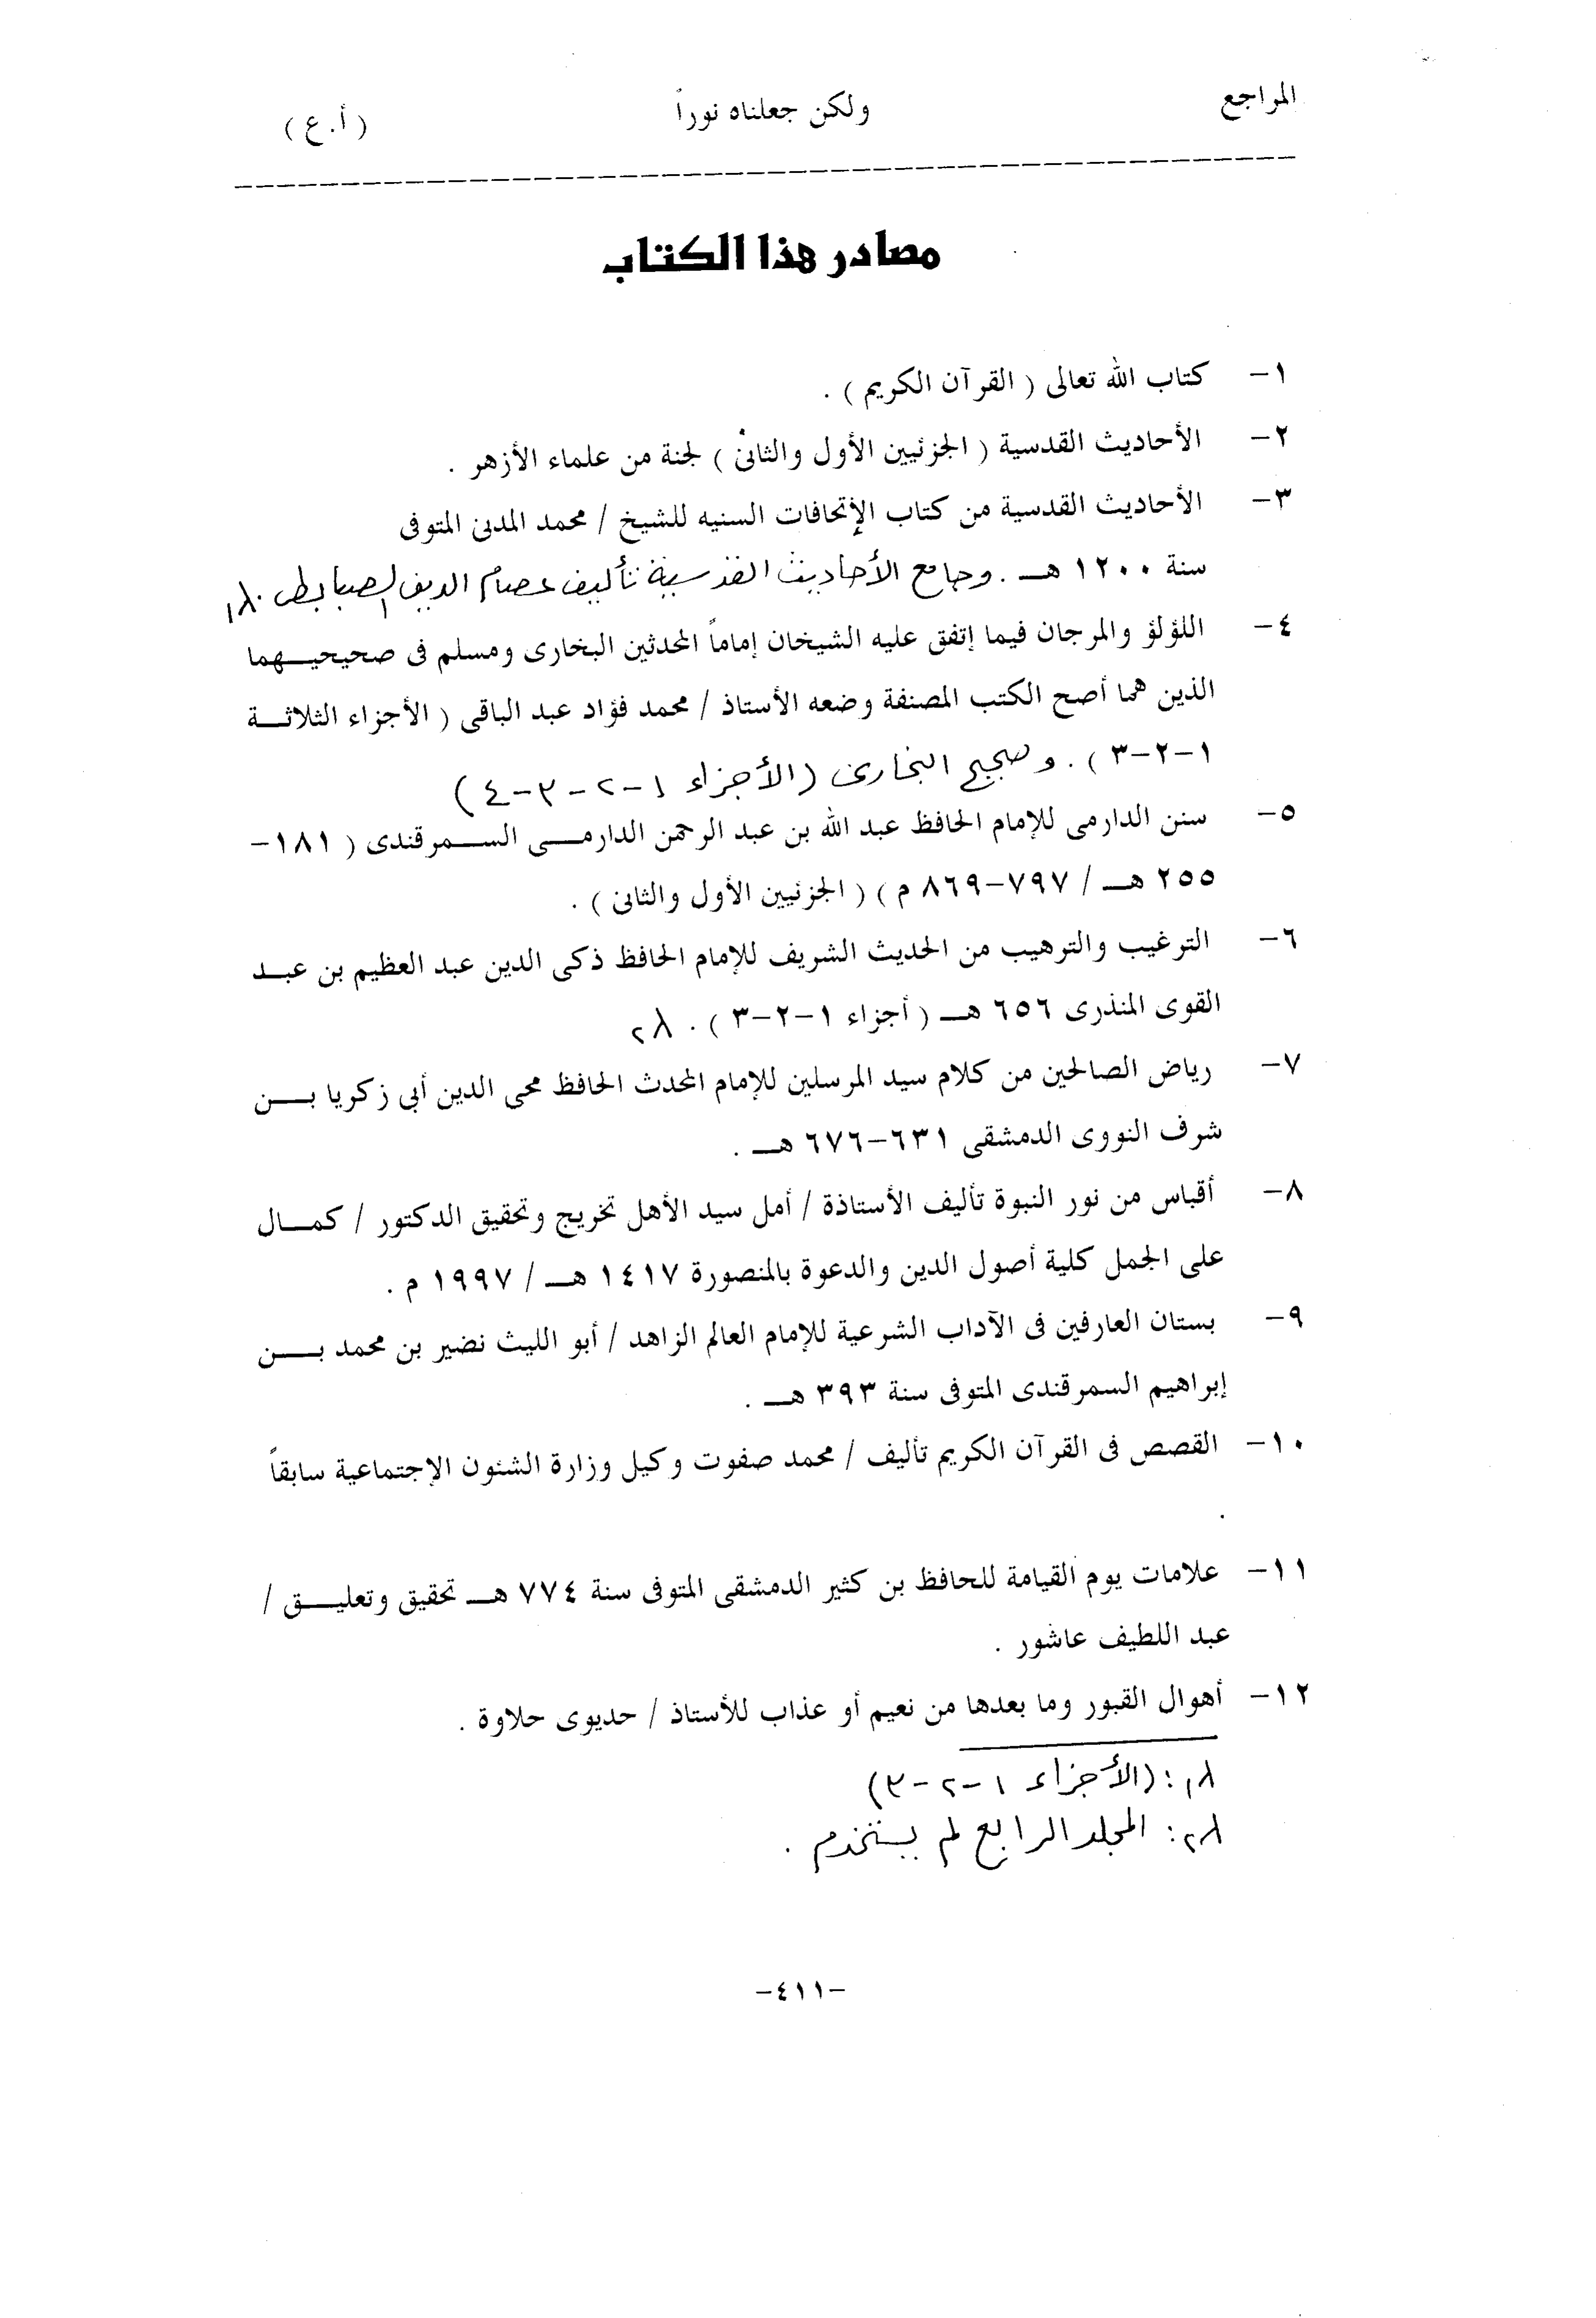 المراجع ولكن جعلناه نوراً ( أ.ع )
مصادر هذا الكتاب
١- كتاب الله تعالى ( القرآن الكريم ) .
٢- الأحاديث القدسية ( الجزئيين الأول والثانى ) لجنة من علماء الأزهر .
٣- الأحاديث القدسية من كتاب الإتحافات السنيه للشيخ / محمد المدنى المتوفى
سنة ١٢٠٠ هـ . وجامع الأحاديث القدسية تأليف عصام الدين الصبابطى .
٤- اللؤلؤ والمرجان فيما إتفق عليه الشيخان إماماً المحدثين البخارى ومسلم فى صحيحيهما
الذين هما أصح الكتب المصنفة وضعه الأستاذ / محمد فؤاد عبد الباقى ( الأجزاء الثلاثة
١-٢-٣ ) . وصحيح البخارى (الأجزاء ١-٢-٣-٤)
٥- سنن الدارمى للإمام الحافظ عبد الله بن عبد الرحمن الدارمى السمرقندى ( ١٨١-
٢٥٥ هـ / ٧٩٧-٨٦٩ م ) ( الجزئيين الأول والثانى ) .
٦- الترغيب والترهيب من الحديث الشريف للإمام الحافظ ذكى الدين عبد العظيم بن عبد
القوى المنذرى ٦٥٦ هـ ( أجزاء ١-٢-٣ ) .
٧- رياض الصالحين من كلام سيد المرسلين للإمام المحدث الحافظ محى الدين أبى زكريا بن
شرف النووى الدمشقى ٦٣١-٦٧٦ هـ .
٨- أقباس من نور النبوة تأليف الأستاذة / أمل سيد الأهل تخريج وتحقيق الدكتور / كمال
على الجمل كلية أصول الدين والدعوة بالمنصورة ١٤١٧ هـ / ١٩٩٧ م .
٩- بستان العارفين فى الآداب الشرعية للإمام العالم الزاهد / أبو الليث نضير بن محمد بن
إبراهيم السمرقندى المتوفى سنة ٣٩٣ هـ .
١٠- القصص فى القرآن الكريم تأليف / محمد صفوت وكيل وزارة الشئون الإجتماعية سابقاً
.
١١- علامات يوم القيامة للحافظ بن كثير الدمشقى المتوفى سنة ٧٧٤ هـ تحقيق وتعليق /
عبد اللطيف عاشور .
١٢- أهوال القبور وما بعدها من نعيم أو عذاب للأستاذ / حديوى حلاوة .
: (الأجزاء ١-٢-٣)
: المجلد الرابع لم يستخدم .
-٤١١-